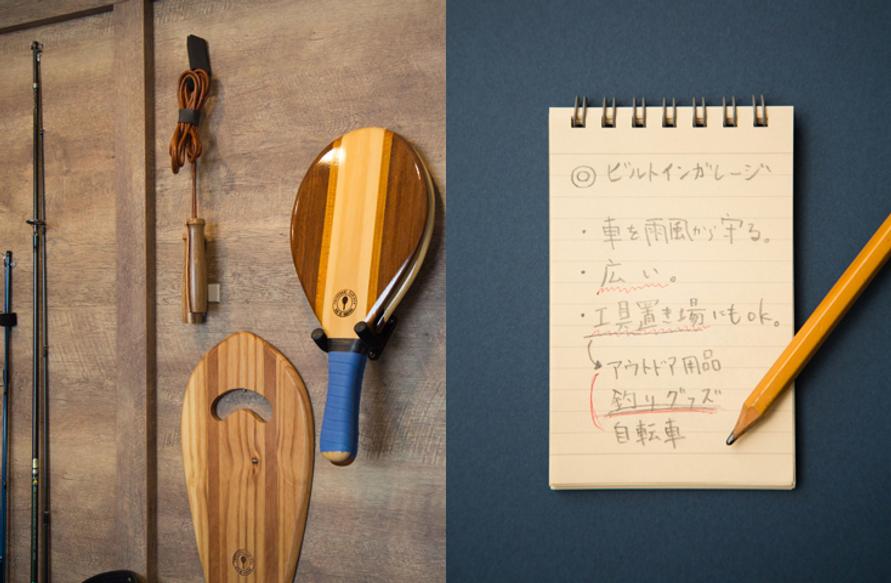 ◎ ビルトインガレージ
・車を雨風から守る。
・広い。
・工具置き場にもok。
アウトドア用品
釣りグッズ
自転車